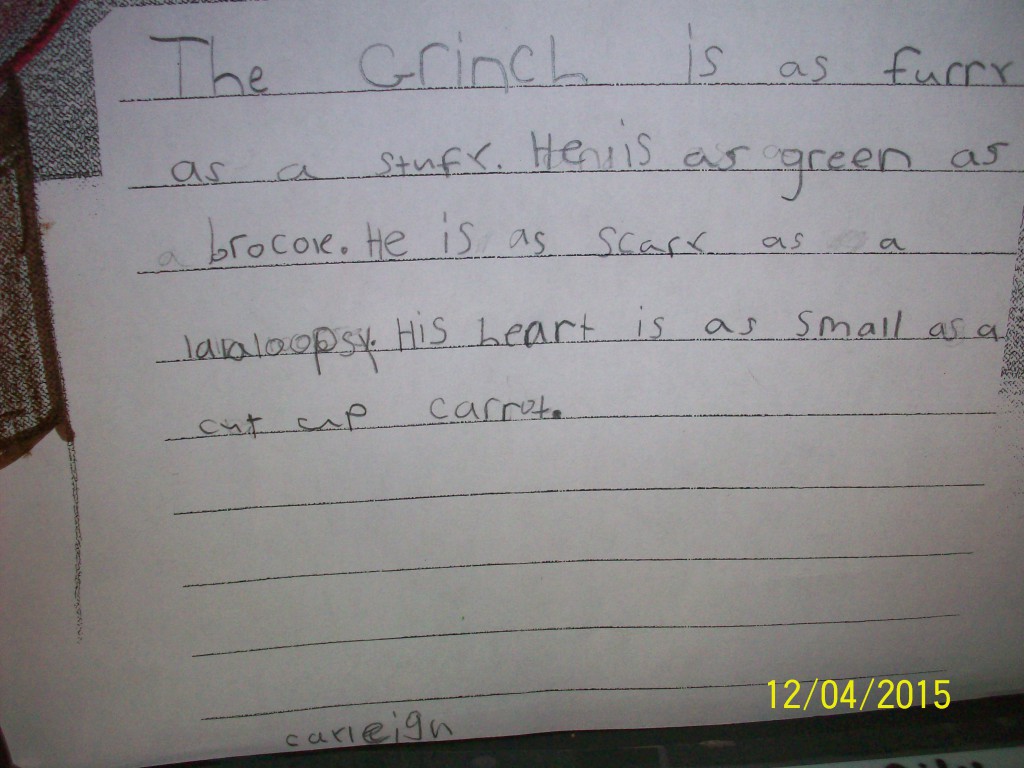 The Grinch is as furry
as a stufy. He is as green as
a brocole. He is as scary as a
lalaloopsy. His heart is as small as a
cut up carrot.
carleigh
12/04/2015